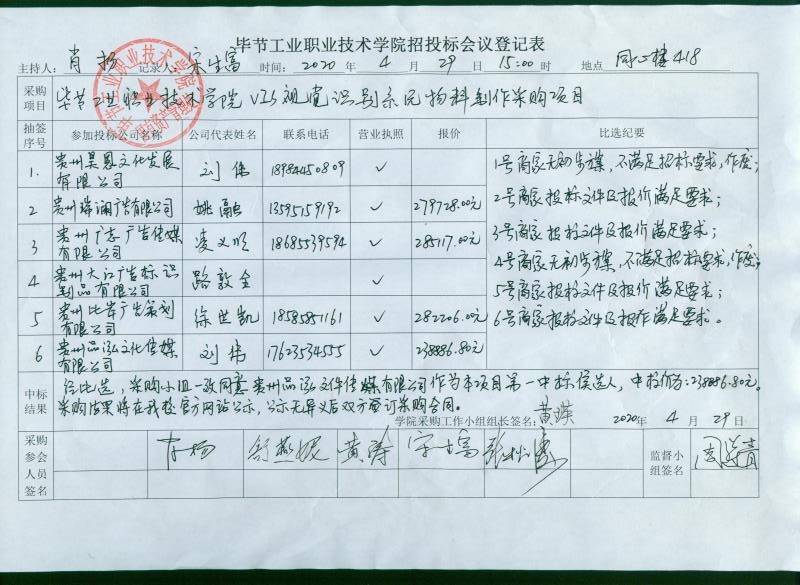 毕节工业职业技术学院招投标会议登记表
主持人: 肖杨 记录人: 宋生富 时间: 2020 年 4 月 29 日 15:00 时 地点 同心楼418
采购项目 毕节工业职业技术学院VIS视觉识别系统物料制作采购项目
抽签序号 参加投标公司名称 公司代表姓名 联系电话 营业执照 报价 比选纪要
1. 贵州昊恩文化发展有限公司 刘伟 18984450809 ✓
2 贵州瑞澜广告有限公司 姚融 13595159192 ✓ 279728.00元
3 贵州广志广告传媒有限公司 凌义顺 18685539594 ✓ 285117.00元
4 贵州大江广告标识制品有限公司 路敦全 ✓
5 贵州比岸广告策划有限公司 徐世凯 18585851161 ✓ 282206.00元
6 贵州品泓文化传媒有限公司 刘伟 17623534555 ✓ 238886.80元
1号商家无初步媒,不满足招标要求,作废;
2号商家投标文件及报价满足要求;
3号商家投标文件及报价满足要求;
4号商家无初步媒,不满足招标要求,作废;
5号商家投标文件及报价满足要求;
6号商家投标文件及报价满足要求。
中标结果 经比选,采购小组一致同意贵州品泓文件传媒有限公司作为本项目第一中标候选人,中标价为:238886.80元。
采购结果将在我校官方网站公示,公示无异义后双方签订采购合同。
学院采购工作小组组长签名: 黄瑛 2020年 4 月 29日
采购参会人员签名 肖杨 舒燕妮 黄涛 宋生富 监督小组签名